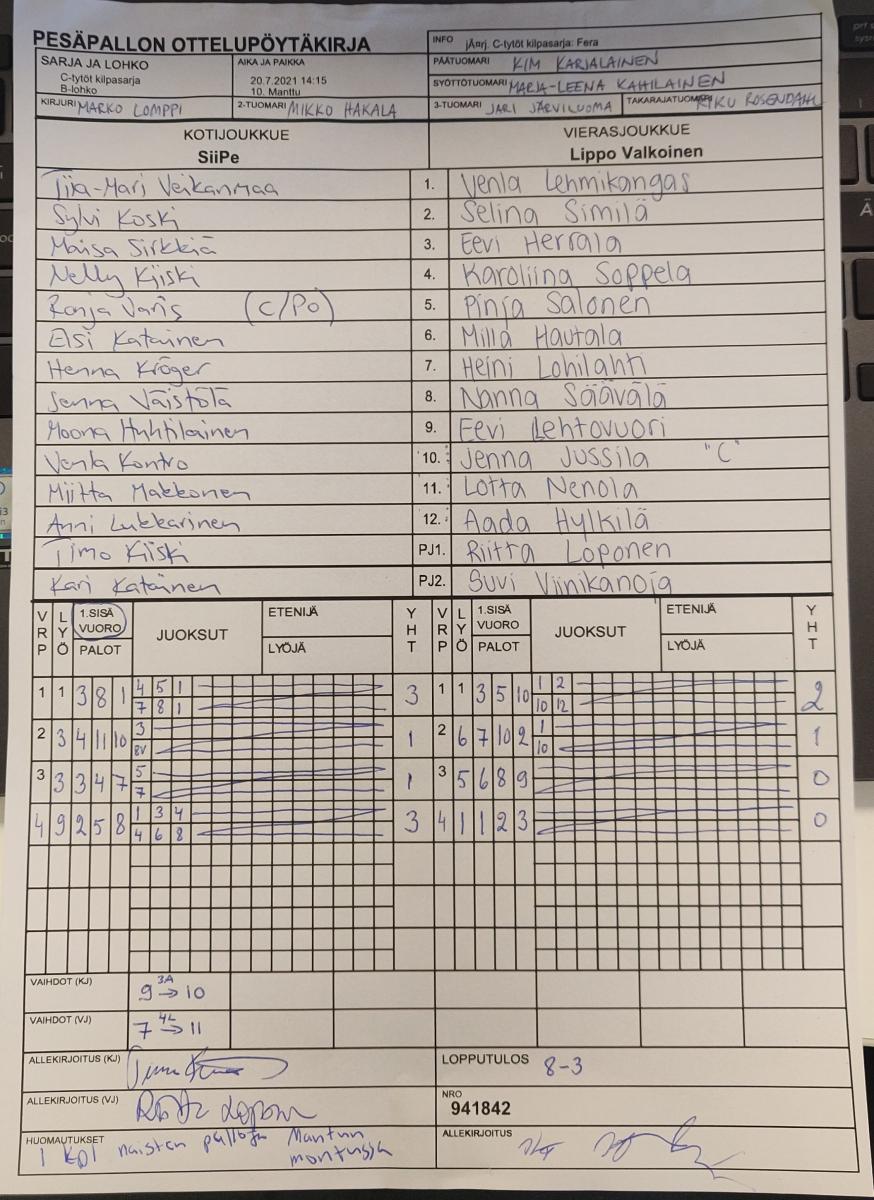 PESÄPALLON OTTELUPÖYTÄKIRJA
INFO jÄrj. C-tytöt kilpasarja: Fera
SARJA JA LOHKO
C-tytöt kilpasarja
B-lohko
AIKA JA PAIKKA
20.7.2021 14:15
10. Manttu
PÄÄTUOMARI KIM KARJALAINEN
SYÖTTÖTUOMARI MARJA-LEENA KAHILAINEN
KIRJURI MARKO LOMPPI
2-TUOMARI MIKKO HAKALA
3-TUOMARI JARI JÄRVILUOMA
TAKARAJATUOMARI RIKU ROSENDAHL
KOTIJOUKKUE
SiiPe
VIERASJOUKKUE
Lippo Valkoinen
Tiia-Mari Veikanmaa 1. Venla Lehmikangas
Sylvi Koski 2. Selina Similä
Maisa Sirkkiä 3. Eevi Herrala
Nelly Kiiski 4. Karoliina Soppela
Ronja Varis (C/Po) 5. Pinja Salonen
Elsi Katainen 6. Milla Hautala
Henna Kröger 7. Heini Lohilahti
Senna Väistölä 8. Nanna Säävälä
Moona Huhtilainen 9. Eevi Lehtovuori
Venla Kontro 10. Jenna Jussila "C"
Miitta Makkonen 11. Lotta Nenola
Anni Lukkarinen 12. Aada Hylkilä
Timo Kiiski PJ1. Riitta Loponen
Kari Katainen PJ2. Suvi Viinikanoja
VRP LYÖ 1.SISÄ VUORO PALOT JUOKSUT ETENIJÄ LYÖJÄ YHT VRP LYÖ 1.SISÄ VUORO PALOT JUOKSUT ETENIJÄ LYÖJÄ YHT
1 1 3 8 1 4 5 1 3 1 1 3 5 10 1 2 2
7 8 1 10 12
2 3 4 11 10 3 1 2 6 7 10 2 1 1
8V 10
3 3 3 4 7 5 1 3 5 6 8 9 0
7
4 9 2 5 8 1 3 4 3 4 1 1 2 3 0
4 6 8
VAIHDOT (KJ) 9 3A→ 10
VAIHDOT (VJ) 7 4L→ 11
ALLEKIRJOITUS (KJ)
LOPPUTULOS 8-3
ALLEKIRJOITUS (VJ)
NRO
941842
HUOMAUTUKSET
1 kpl naisten palloja Mantun
montussa
ALLEKIRJOITUS